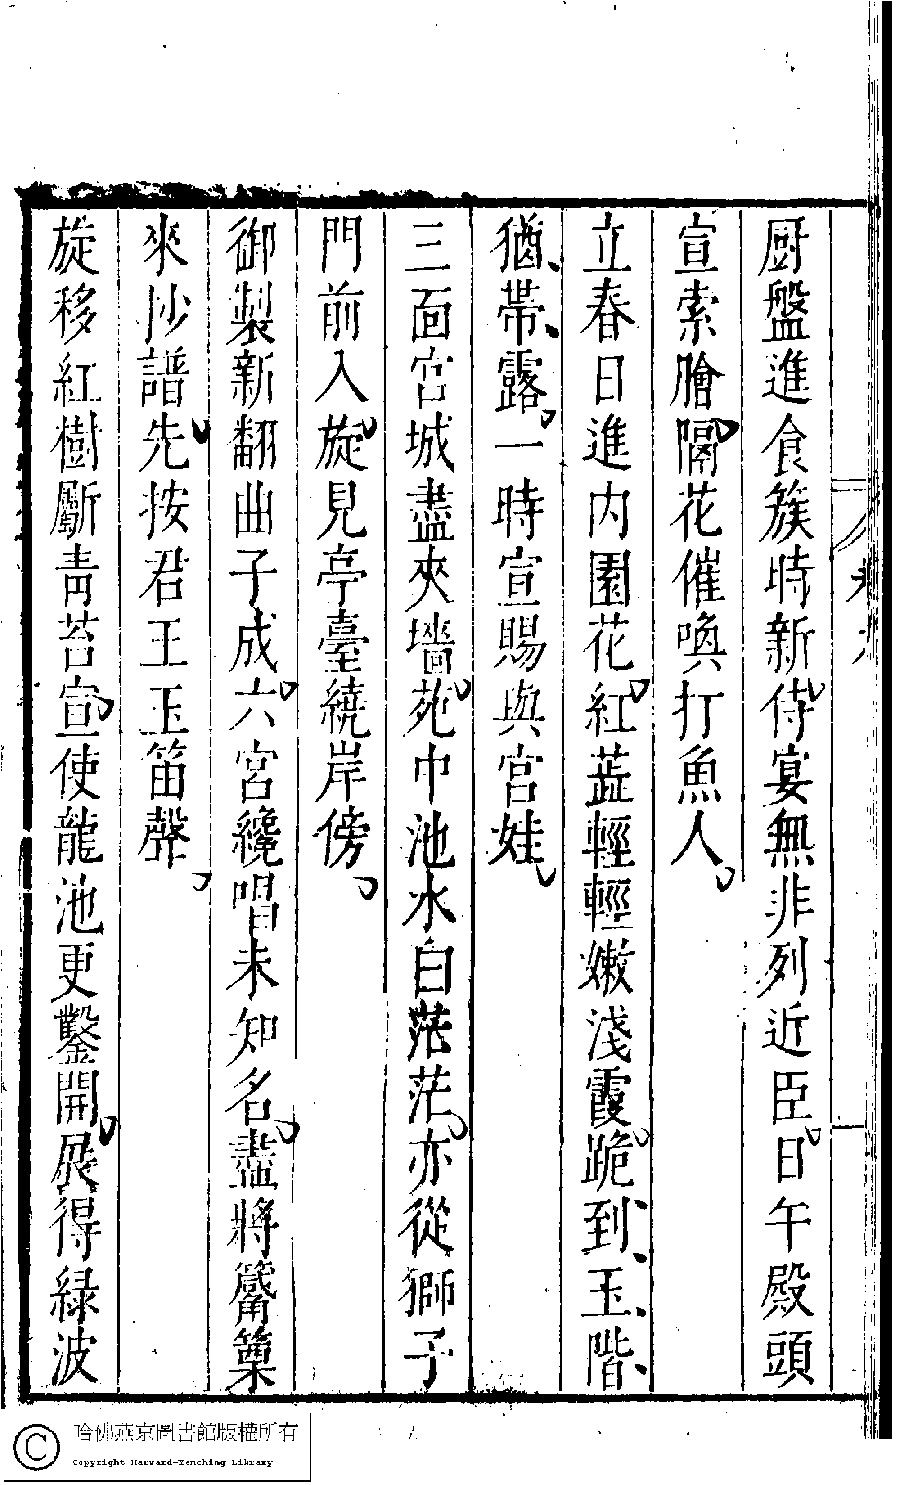 厨盤進食簇時新侍宴無非列近臣日午殿頭
宣索膾隔花催喚打魚人
立春日進內園花紅蕋輕輕嫩淺霞跪到玉階
猶帶露一時宣賜與宮娃
三面宮城盡夾墻苑中池水白茫茫亦從獅子
門前入旋見亭臺繞岸傍
御製新翻曲子成六宮纔唱未知名盡將觱篥
來抄譜先按君王玉笛聲
旋移紅樹斸青苔宣使龍池更鑿開展得緑波
哈佛燕京圖書館版權所有
Copyright Harvard-Yenching Library